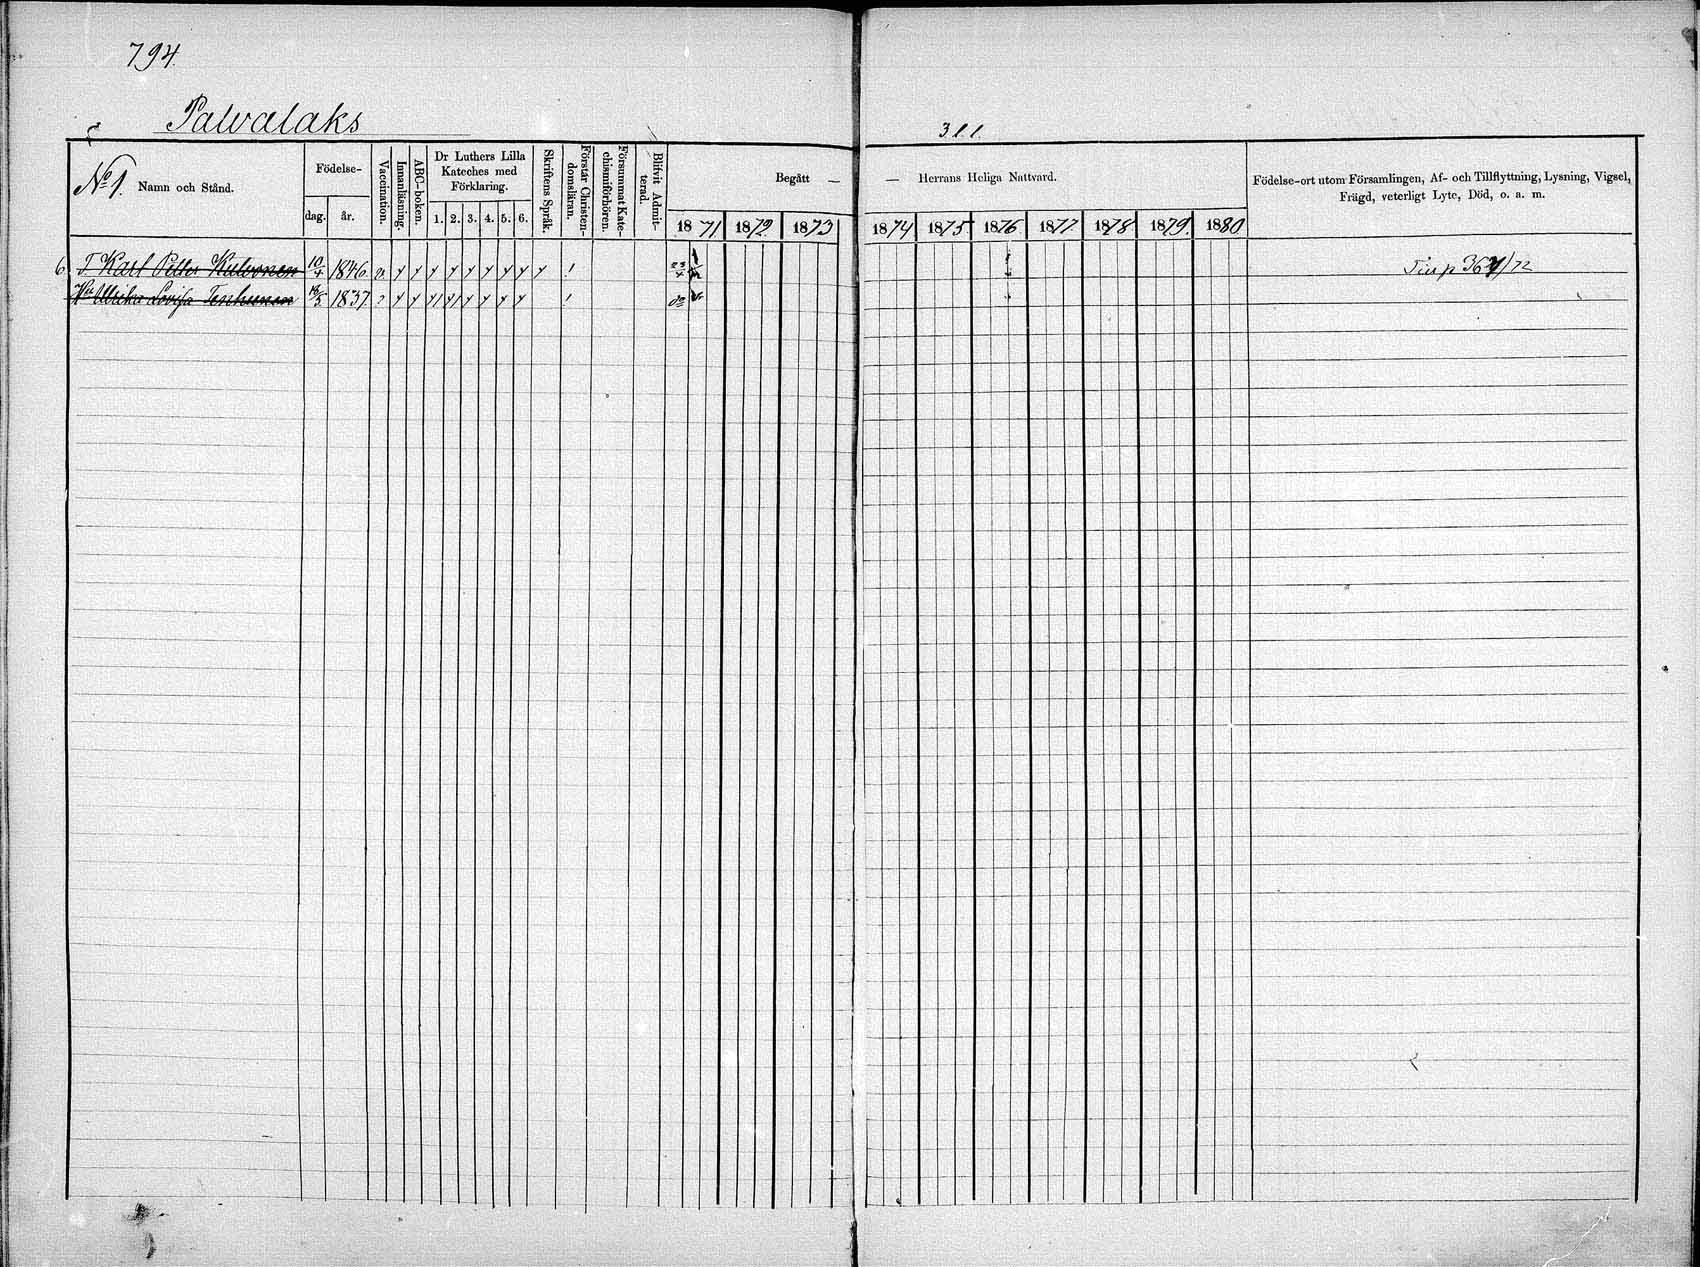 794.
Palvalaks
311.
No 1. Namn och Stånd.
Födelse-
dag. år.
Vaccination.
Innanläsning.
ABC-boken.
Dr Luthers Lilla
Kateches med
Förklaring.
1. 2. 3. 4. 5. 6.
Skriftens Språk.
Förstår Christen-
domsläran.
Försummat Kate-
chismiförhören.
Blifvit Admit-
terad.
Begått —
— Herrans Heliga Nattvard.
1871. 1872. 1873
1874 1875. 1876 1877 1878 1879. 1880
Födelse-ort utom Församlingen, Af- och Tillflyttning, Lysning, Vigsel,
Frägd, veterligt Lyte, Död, o. a. m.
6 T. Karl Petter Kulvonen 10/4 1846. 367/72
Hu Ulrika Lovisa Tenhunen 18/5 1837.